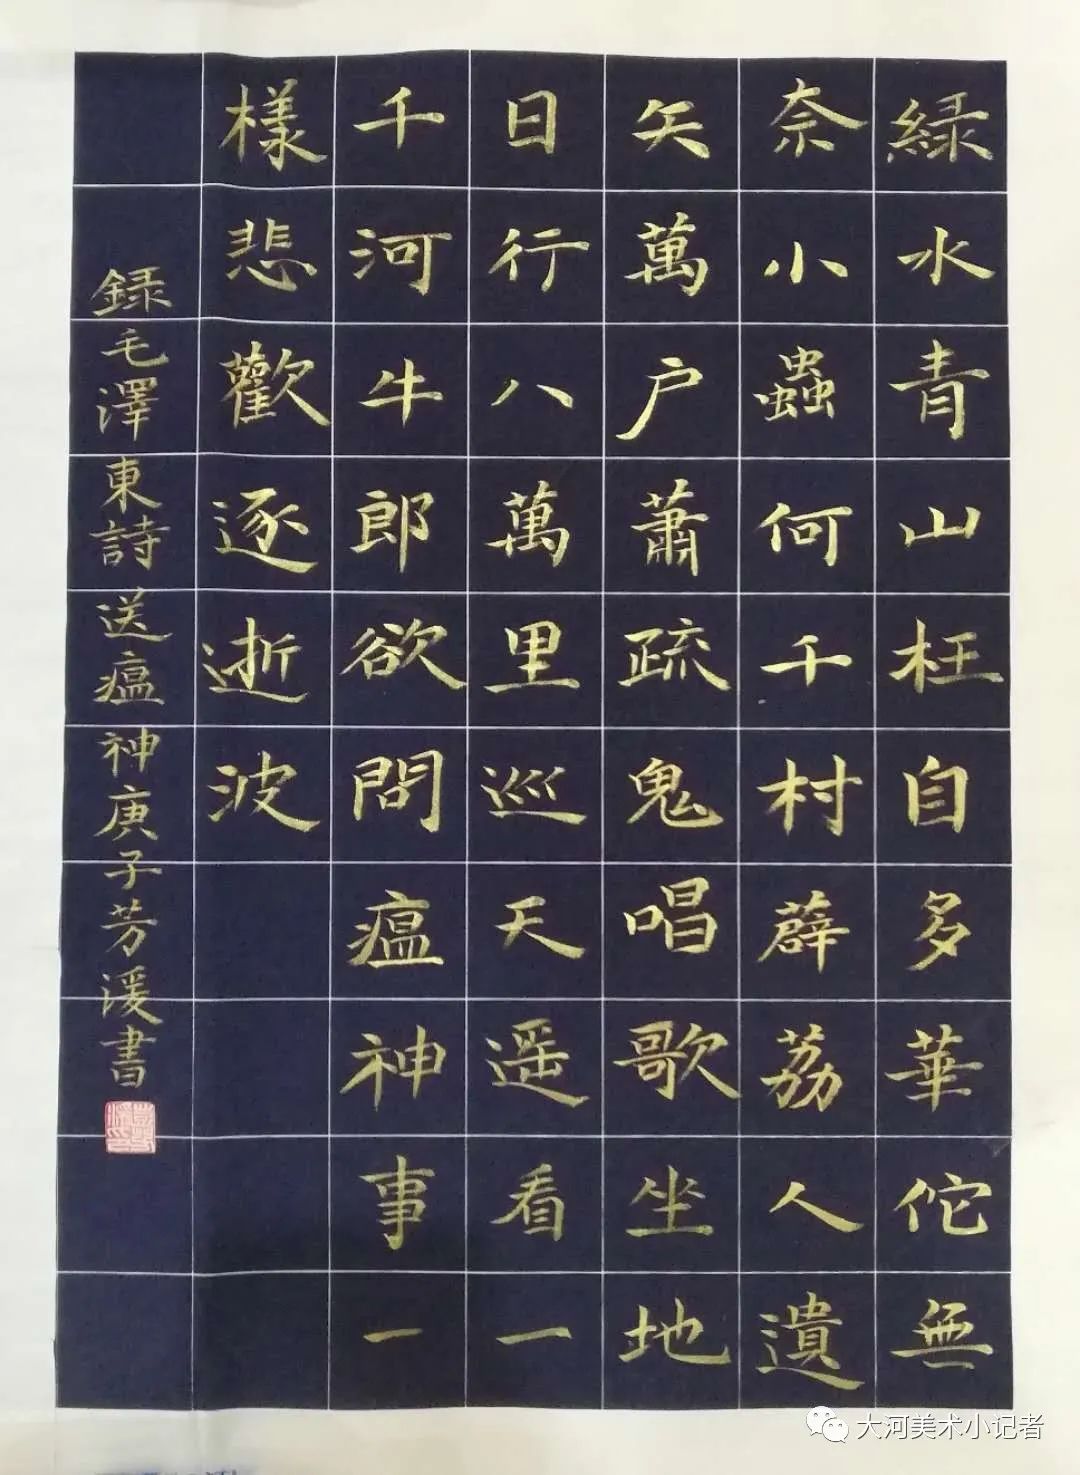 緑水青山枉自多華佗無
奈小蟲何千村薜荔人遺
矢萬户蕭疏鬼唱歌坐地
日行八萬里巡天遥看一
千河牛郎欲問瘟神事一
樣悲歡逐逝波
録毛澤東詩送瘟神庚子芳湲書
大河美术小记者